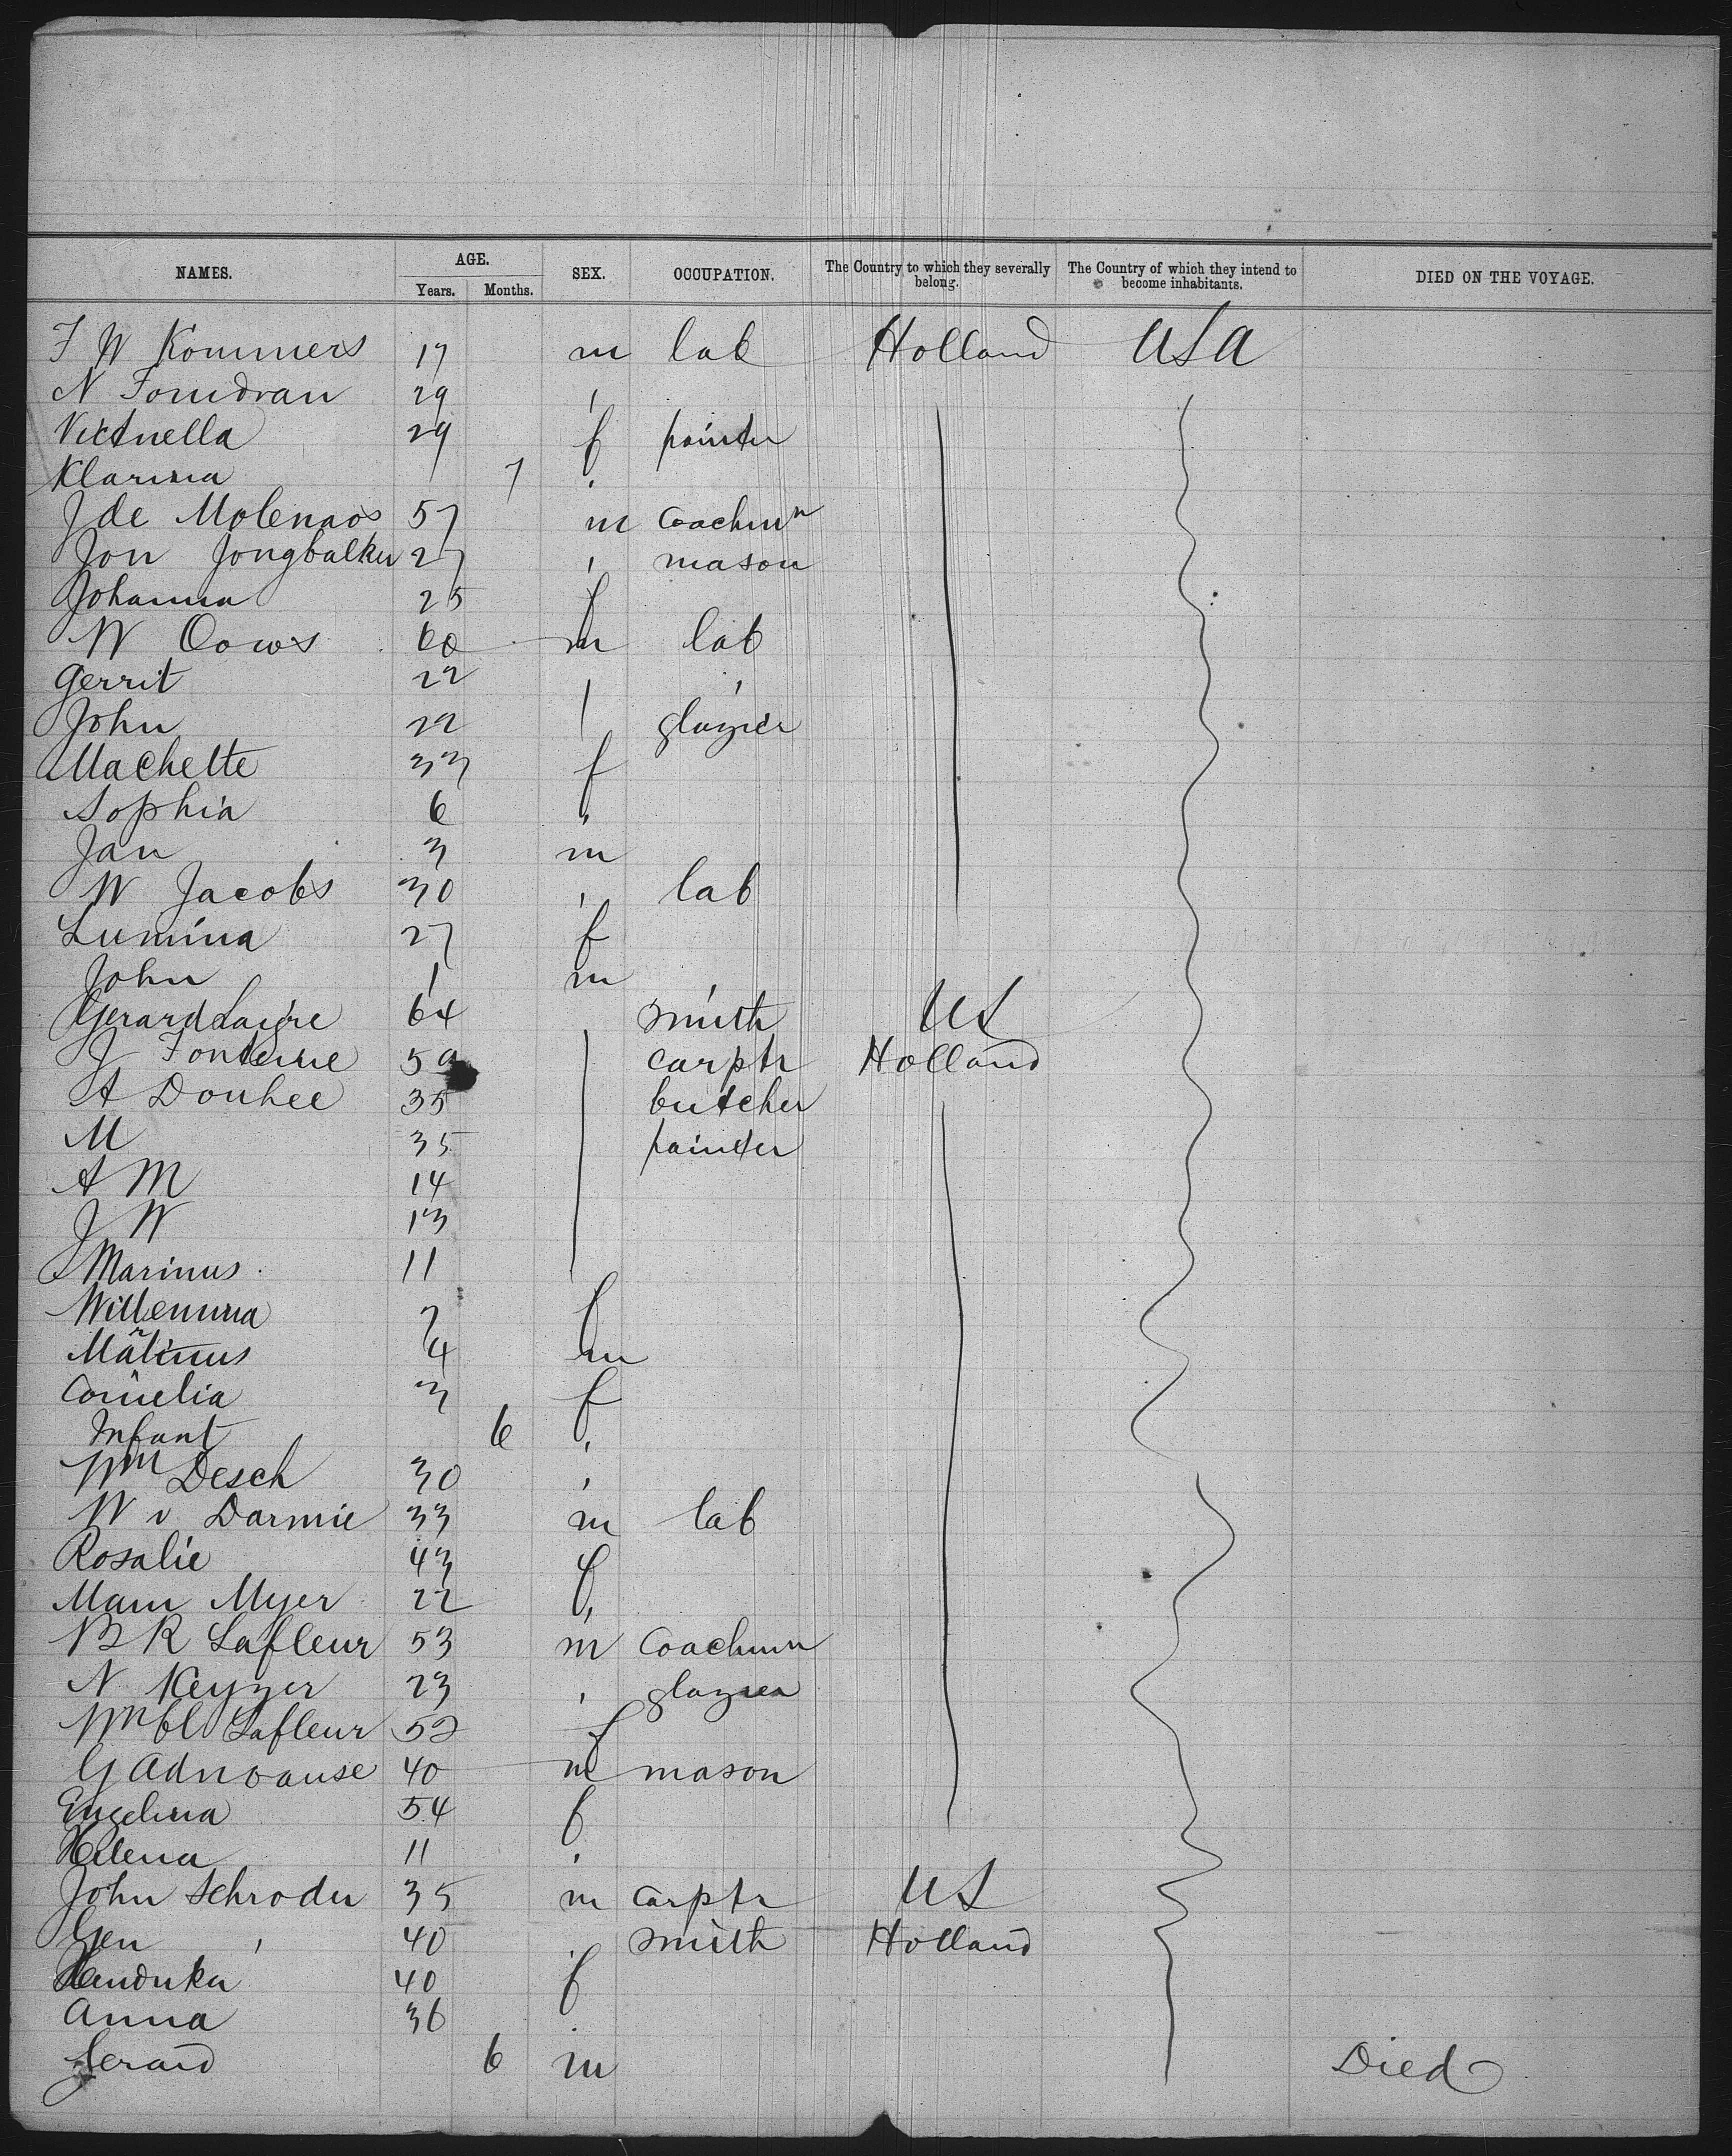 NAMES. AGE. SEX. OCCUPATION. The Country to which they severally belong. The Country of which they intend to become inhabitants. DIED ON THE VOYAGE.
Years. Months.
F W Kommers 17 m lab Holland USA
N Fomdran 29 ,
29 f painter
Klarina 7 ,
J de Molenaos 57 m coachmn
Jon Jongbalker 27 , mason
Johanna 25 f
W Oows 60 m lab
Gerrit 22 ,
John 22 glazier
Machette 33 f
Sophia 6 ,
Jan 3 m
W Jacobs 30 , lab
Lumina 27 f
John 1 m ,
Gerard 64 smith US
J 59 carptr Holland
A Douhee 35 butcher
M 35 painter
A M 14
J W 13
Marinus 11
Willemina 7 f
4 m
Cornelia 3 f
Infant 6 ,
Wm Desch 30 ,
W v Darmie 33 m lab
Rosalie 43 f
Myer 22 ,
B R Lafleur 53 m coachmn
N Keyzer 23 , glazier
Lafleur 52 f
G 40 m mason
Engelina 54 f
Helena 11 ,
John Schroder 35 m carptr US
Gen , 40 smith Holland
40 f
Anna 36
Gerard 6 m Died